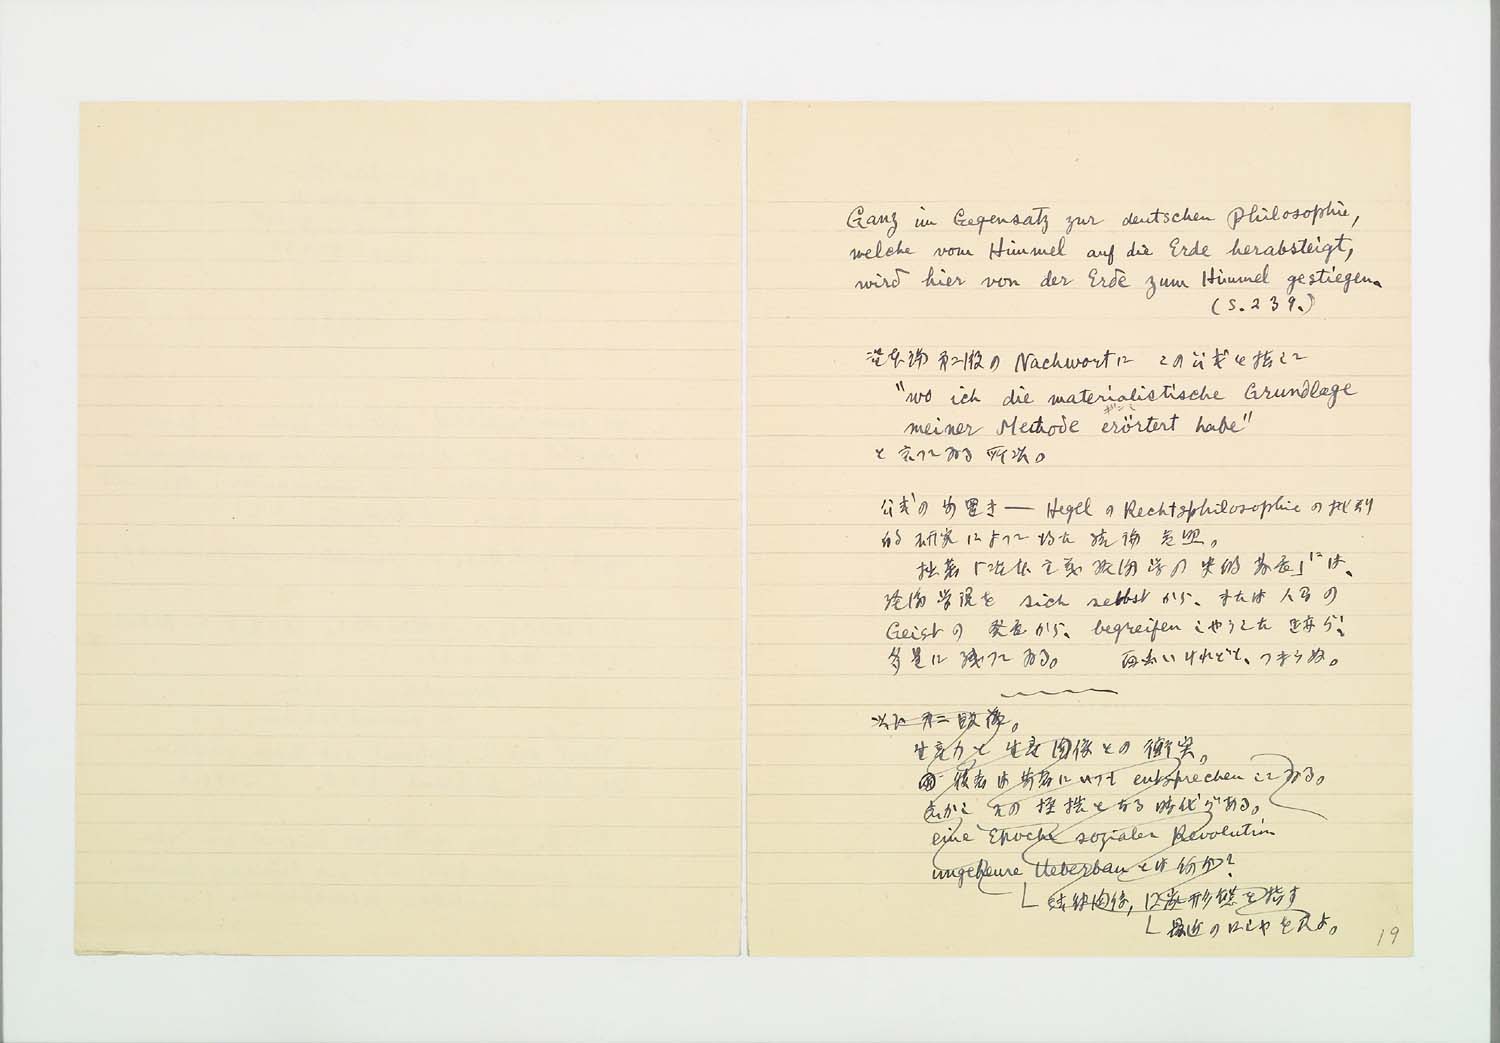 Ganz im Gegensatz zur deutschen Philosophie,
welche vom Himmel auf die Erde herabsteigt,
wird hier von der Erde zum Himmel gestiegen.
(S. 239.)
資本論 第二版の Nachwortに この公式を指して
"wo ich die materialistische Grundlage
meiner Methode erörtert habe"
と言つてゐる所以。
公式の前置き — Hegel の Rechtsphilosophie の批判
的研究によつて得た 結論 参照。
拙著「資本主義経済学の史的発展」には、
経済学説を sich selbst から、または人間の
Geist の 発展から、begreifen しやうとした
多量に残つてゐる。 面白いけれども、つまらぬ。
以下 第二段後。
生産力と 生産関係との 衝突。
後者は前者にいつも entsprechen してゐる。
しかし その 桎梏となる 時代がある。
eine Epoche sozialer Revolution
ungeheure Ueberbau とは何か?
形態を指す
最近のロシヤを見よ。
19